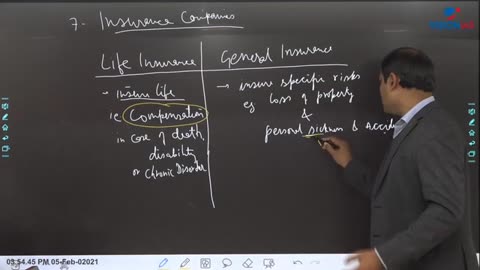 7- Insurance Companies
Life Insurance
- Insure life
ie Compensation
in case of death,
disability
or Chronic Disorder
General Insurance
→ insure specific risks
eg loss of property
&
personal sickness &
03:54:45 PM 05-Feb-02021